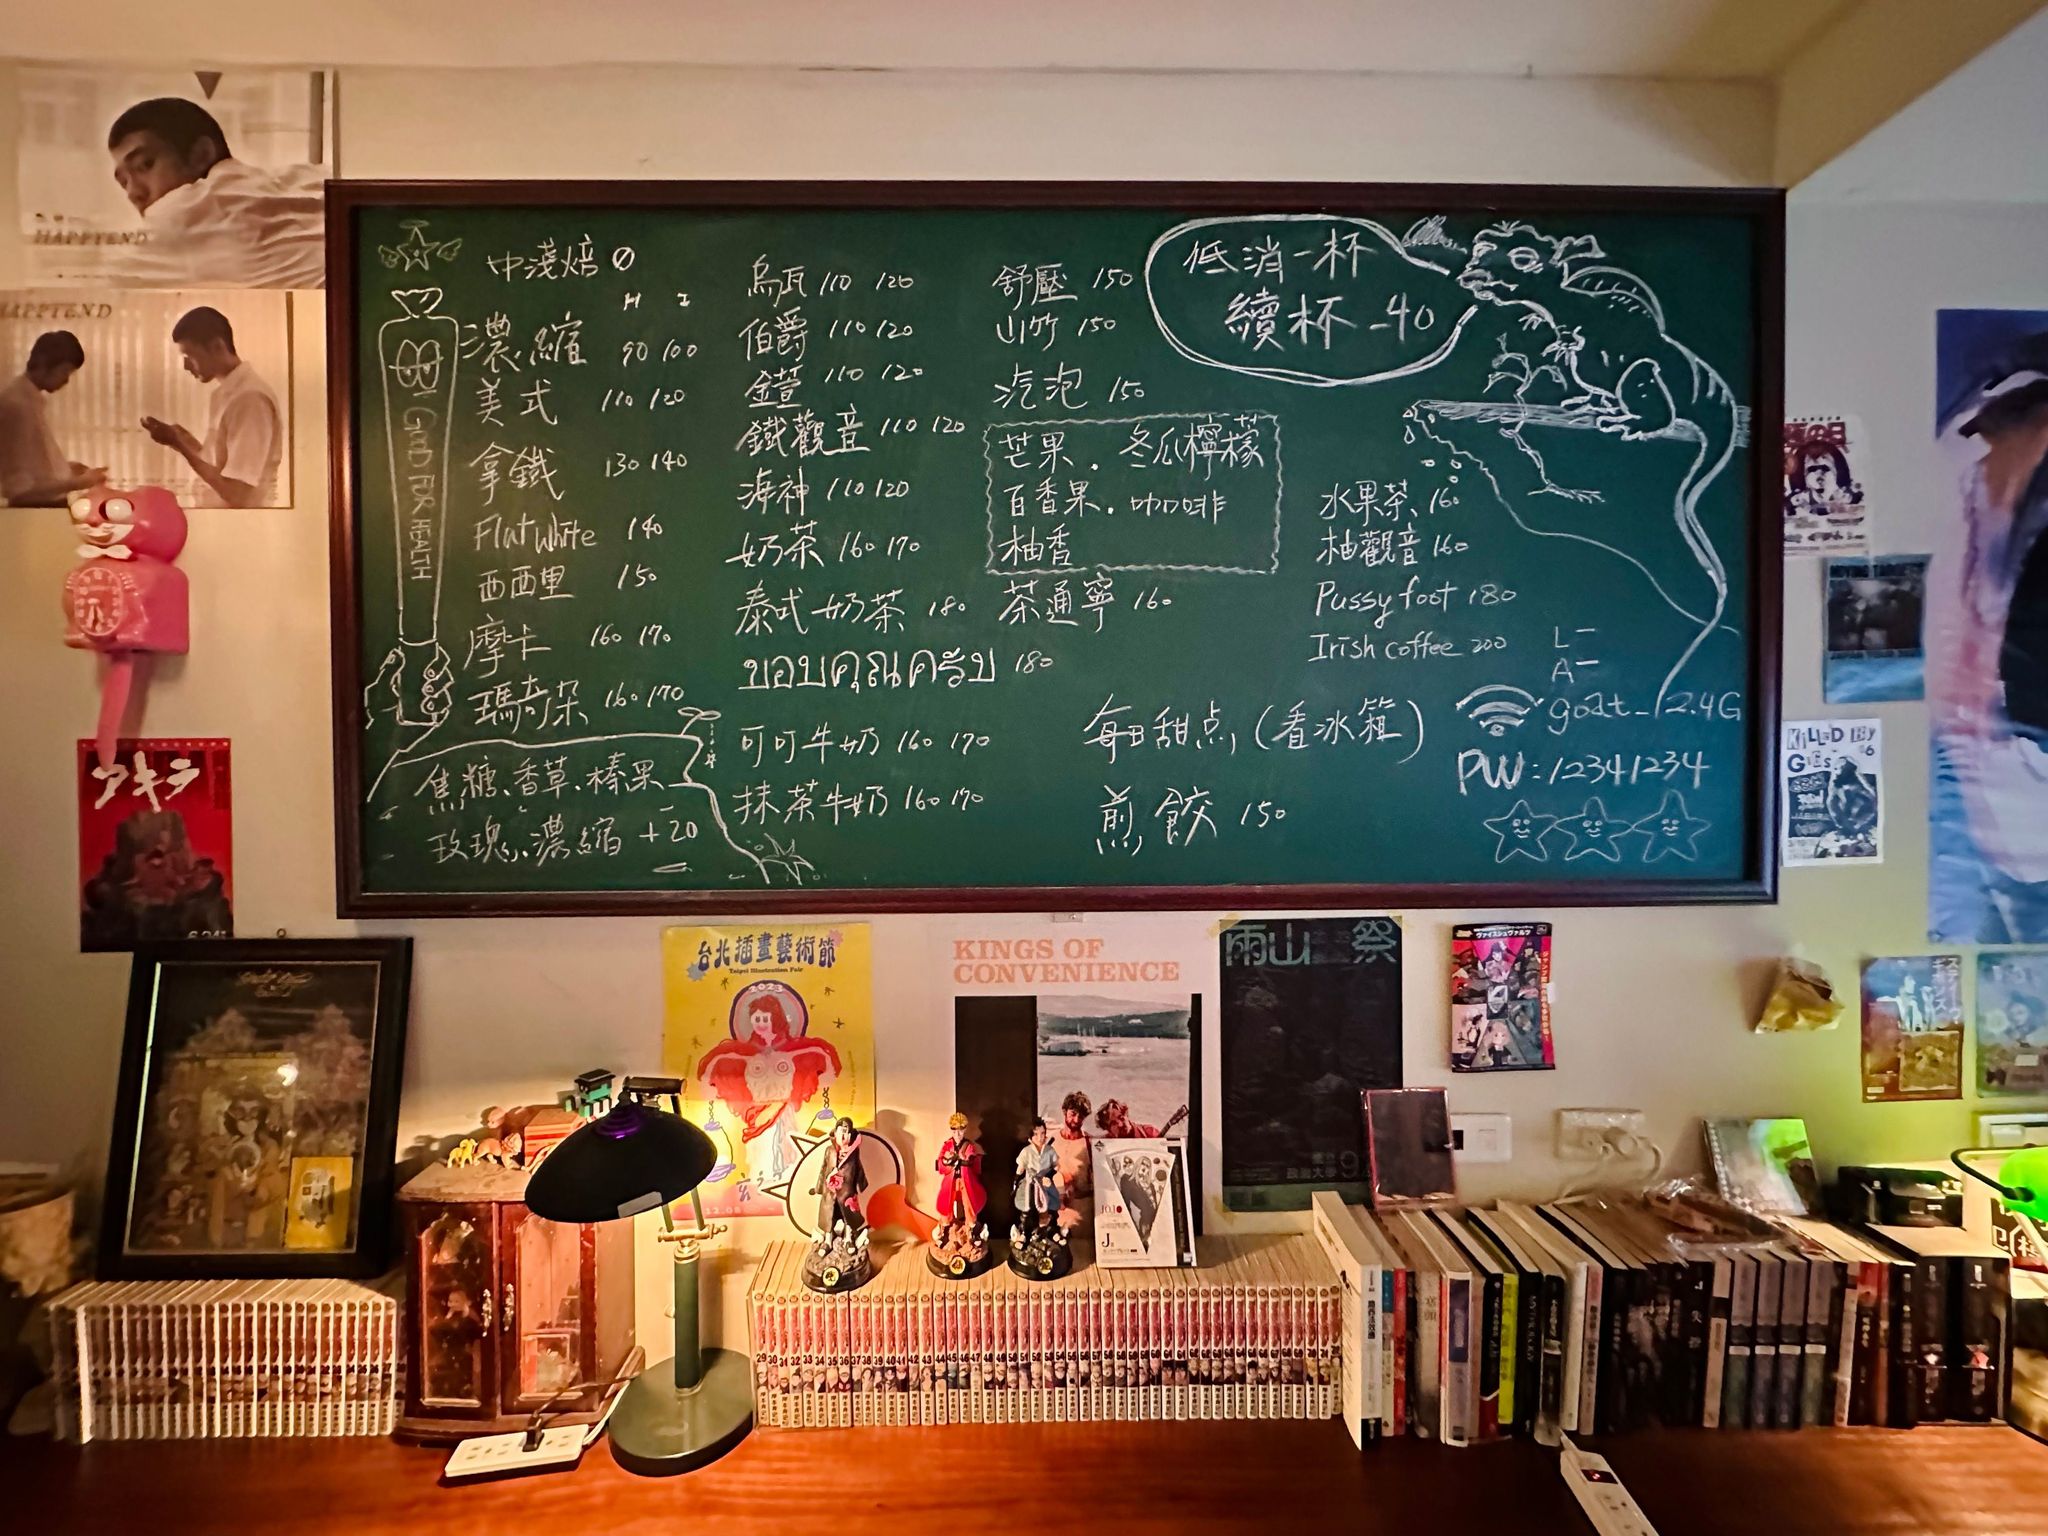 HAPPYEND
HAPPYEND
GOOD FOR HEALTH
中淺焙
H I
濃縮 90 100
美式 110 120
拿鐵 130 140
Flat white 140
西西里 150
摩卡 160 170
瑪奇朵 160 170
焦糖、香草、榛果
玫瑰、濃縮 +20
烏瓦 110 120
伯爵 110 120
金萱 110 120
鐵觀音 110 120
海神 110 120
奶茶 160 170
泰式奶茶 180
ขอบคุณครับ 180
可可牛奶 160 170
抹茶牛奶 160 170
舒壓 150
山竹 150
汽泡 150
芒果.冬瓜檸檬
百香果.咖啡
柚香
茶通寧 160
每日甜点(看冰箱)
煎餃 150
低消一杯
續杯-40
水果茶 160
柚觀音 160
Pussy foot 180
Irish coffee 200
goat_2.4G
PW:12341234
アキラ
台北插畫藝術節
Taipei Illustration Fair
2023
KINGS OF
CONVENIENCE
雨山祭
政治大學
KILLED BY
JOJO
29 30 31 32 33 34 35 36 37 38 39 40 41 42 43 44 45 46 47 48 49 50